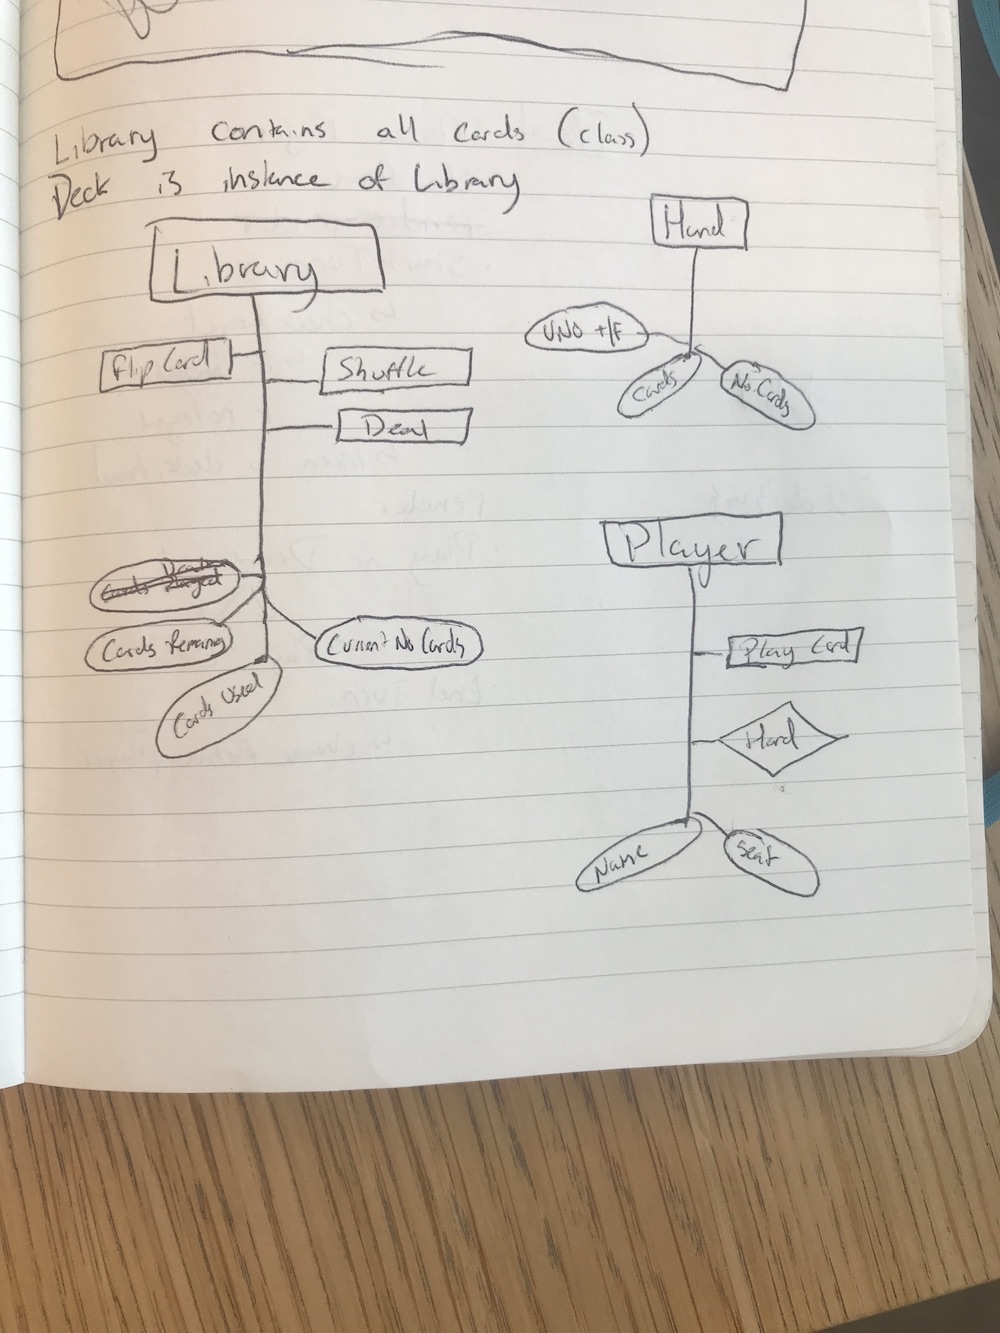 Library contains all Cards (class)
Deck is instance of Library
Library
Flip Card
Shuffle
Deal
Cards Played
Cards Remaining
Cards Used
Current No Cards
Hand
UNO +/F
Cards
No. Cards
Player
Play Card
Hand
Name
Seat